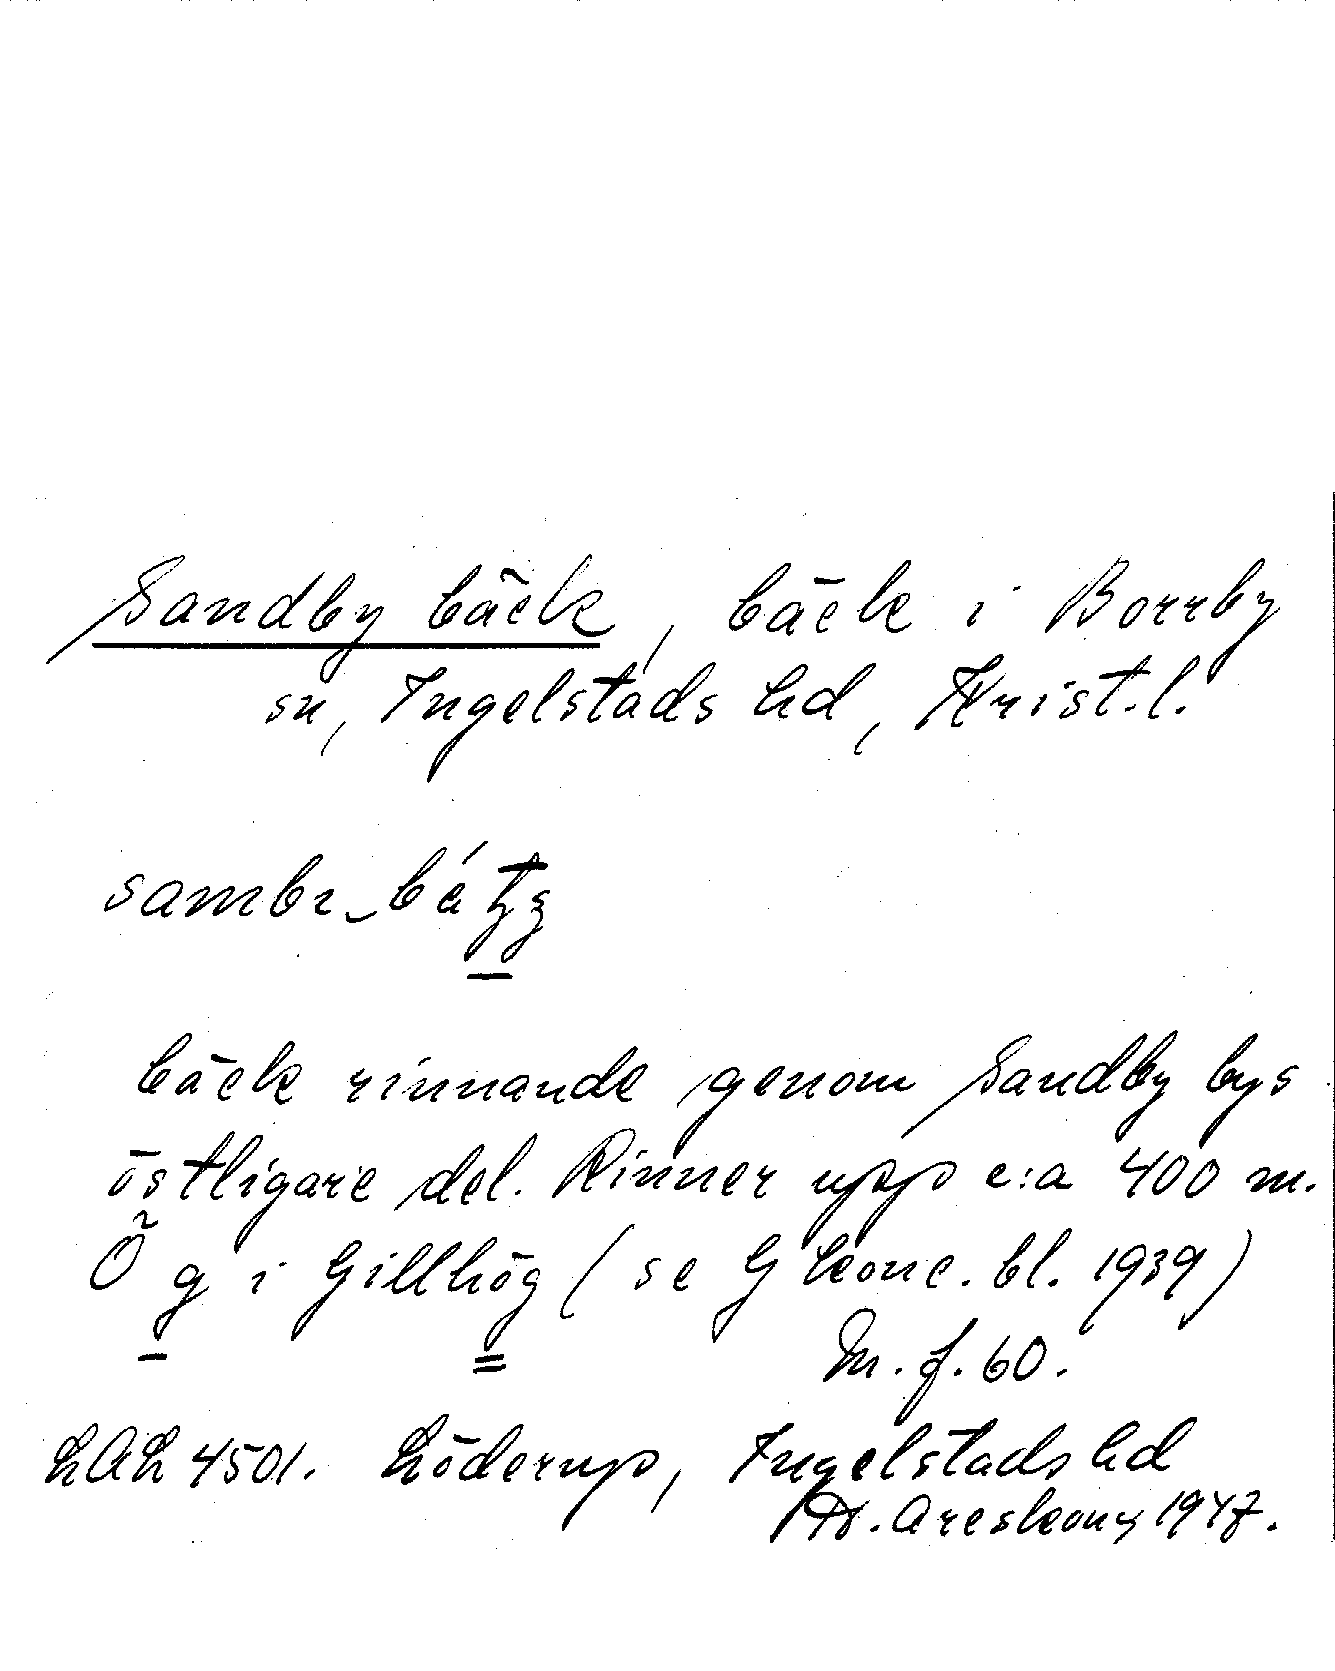 Sandby bäck, bäck i Borrby
sn, Ingelstads hd, Krist. l.
bäck rinnande genom Sandby bys
östligare del. Rinner upp c:a 400 m.
Ö g i Gillhög (se G konc. bl. 1939)
M. f. 60.
LAL 4501. Löderup, Ingelstads hd
Areskoug 1947.